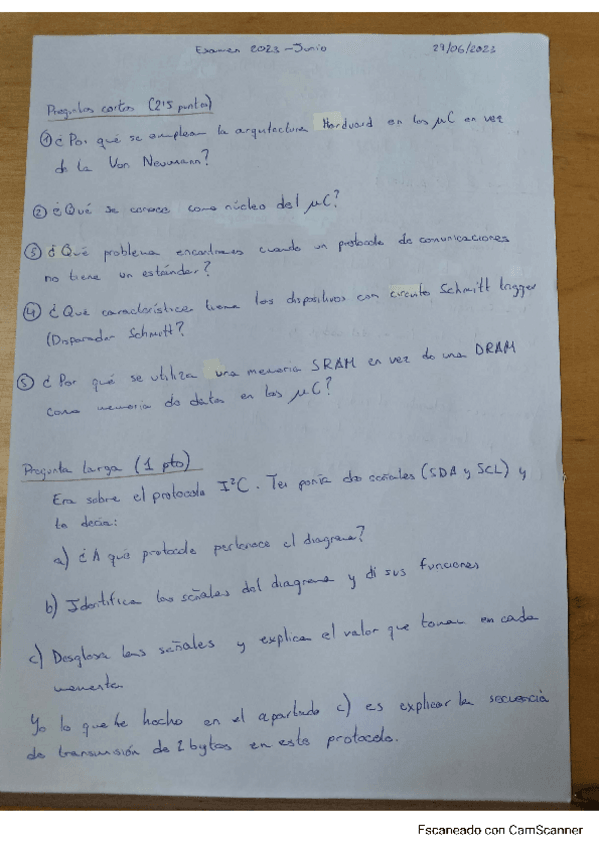 Examen 2023 - Junio 29/06/2023
Preguntas cortas (2'5 puntos)
① ¿Por qué se emplean la arquitectura Hardvard en los μC en vez
de la Von Neumann?
② ¿Qué se conoce como núcleo del μC?
③ ¿Qué problema encontramos cuando un protocolo de comunicaciones
no tiene un estándar?
④ ¿Qué característica tiene los dispositivos con circuito Schmitt trigger
(Disparador Schmitt?
⑤ ¿Por qué se utiliza una memoria SRAM en vez de una DRAM
como memoria de datos en los μC?
Pregunta larga (1 pto)
Era sobre el protocolo I²C. Te ponía dos señales (SDA y SCL) y
te decía:
a) ¿A qué protocolo pertenece el diagrama?
b) Identifica las señales del diagrama y di sus funciones
c) Desglosa las señales y explica el valor que toman en cada
momento.
Yo lo que he hecho en el apartado c) es explicar la secuencia
de transmisión de 2 bytes en este protocolo.
Escaneado con CamScanner